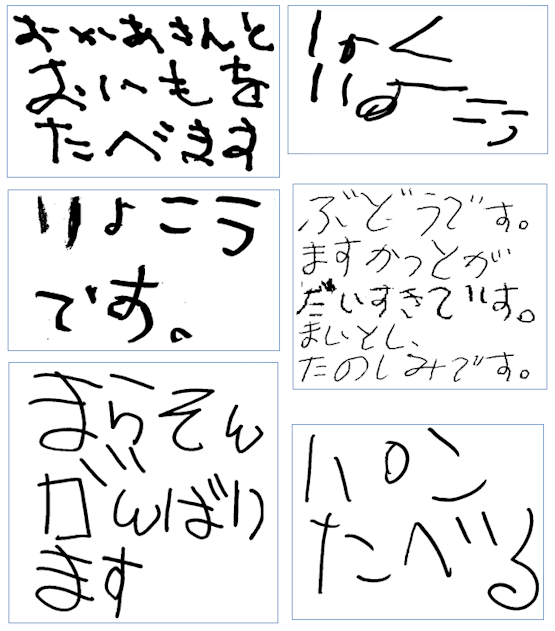 おかあさんと
おいもを
たべます
りょこう
です。
ぶどうです。
ますかっとが
だいすきです。
まいとし、
たのしみです。
まらそん
がんばり
ます
パン
たべる